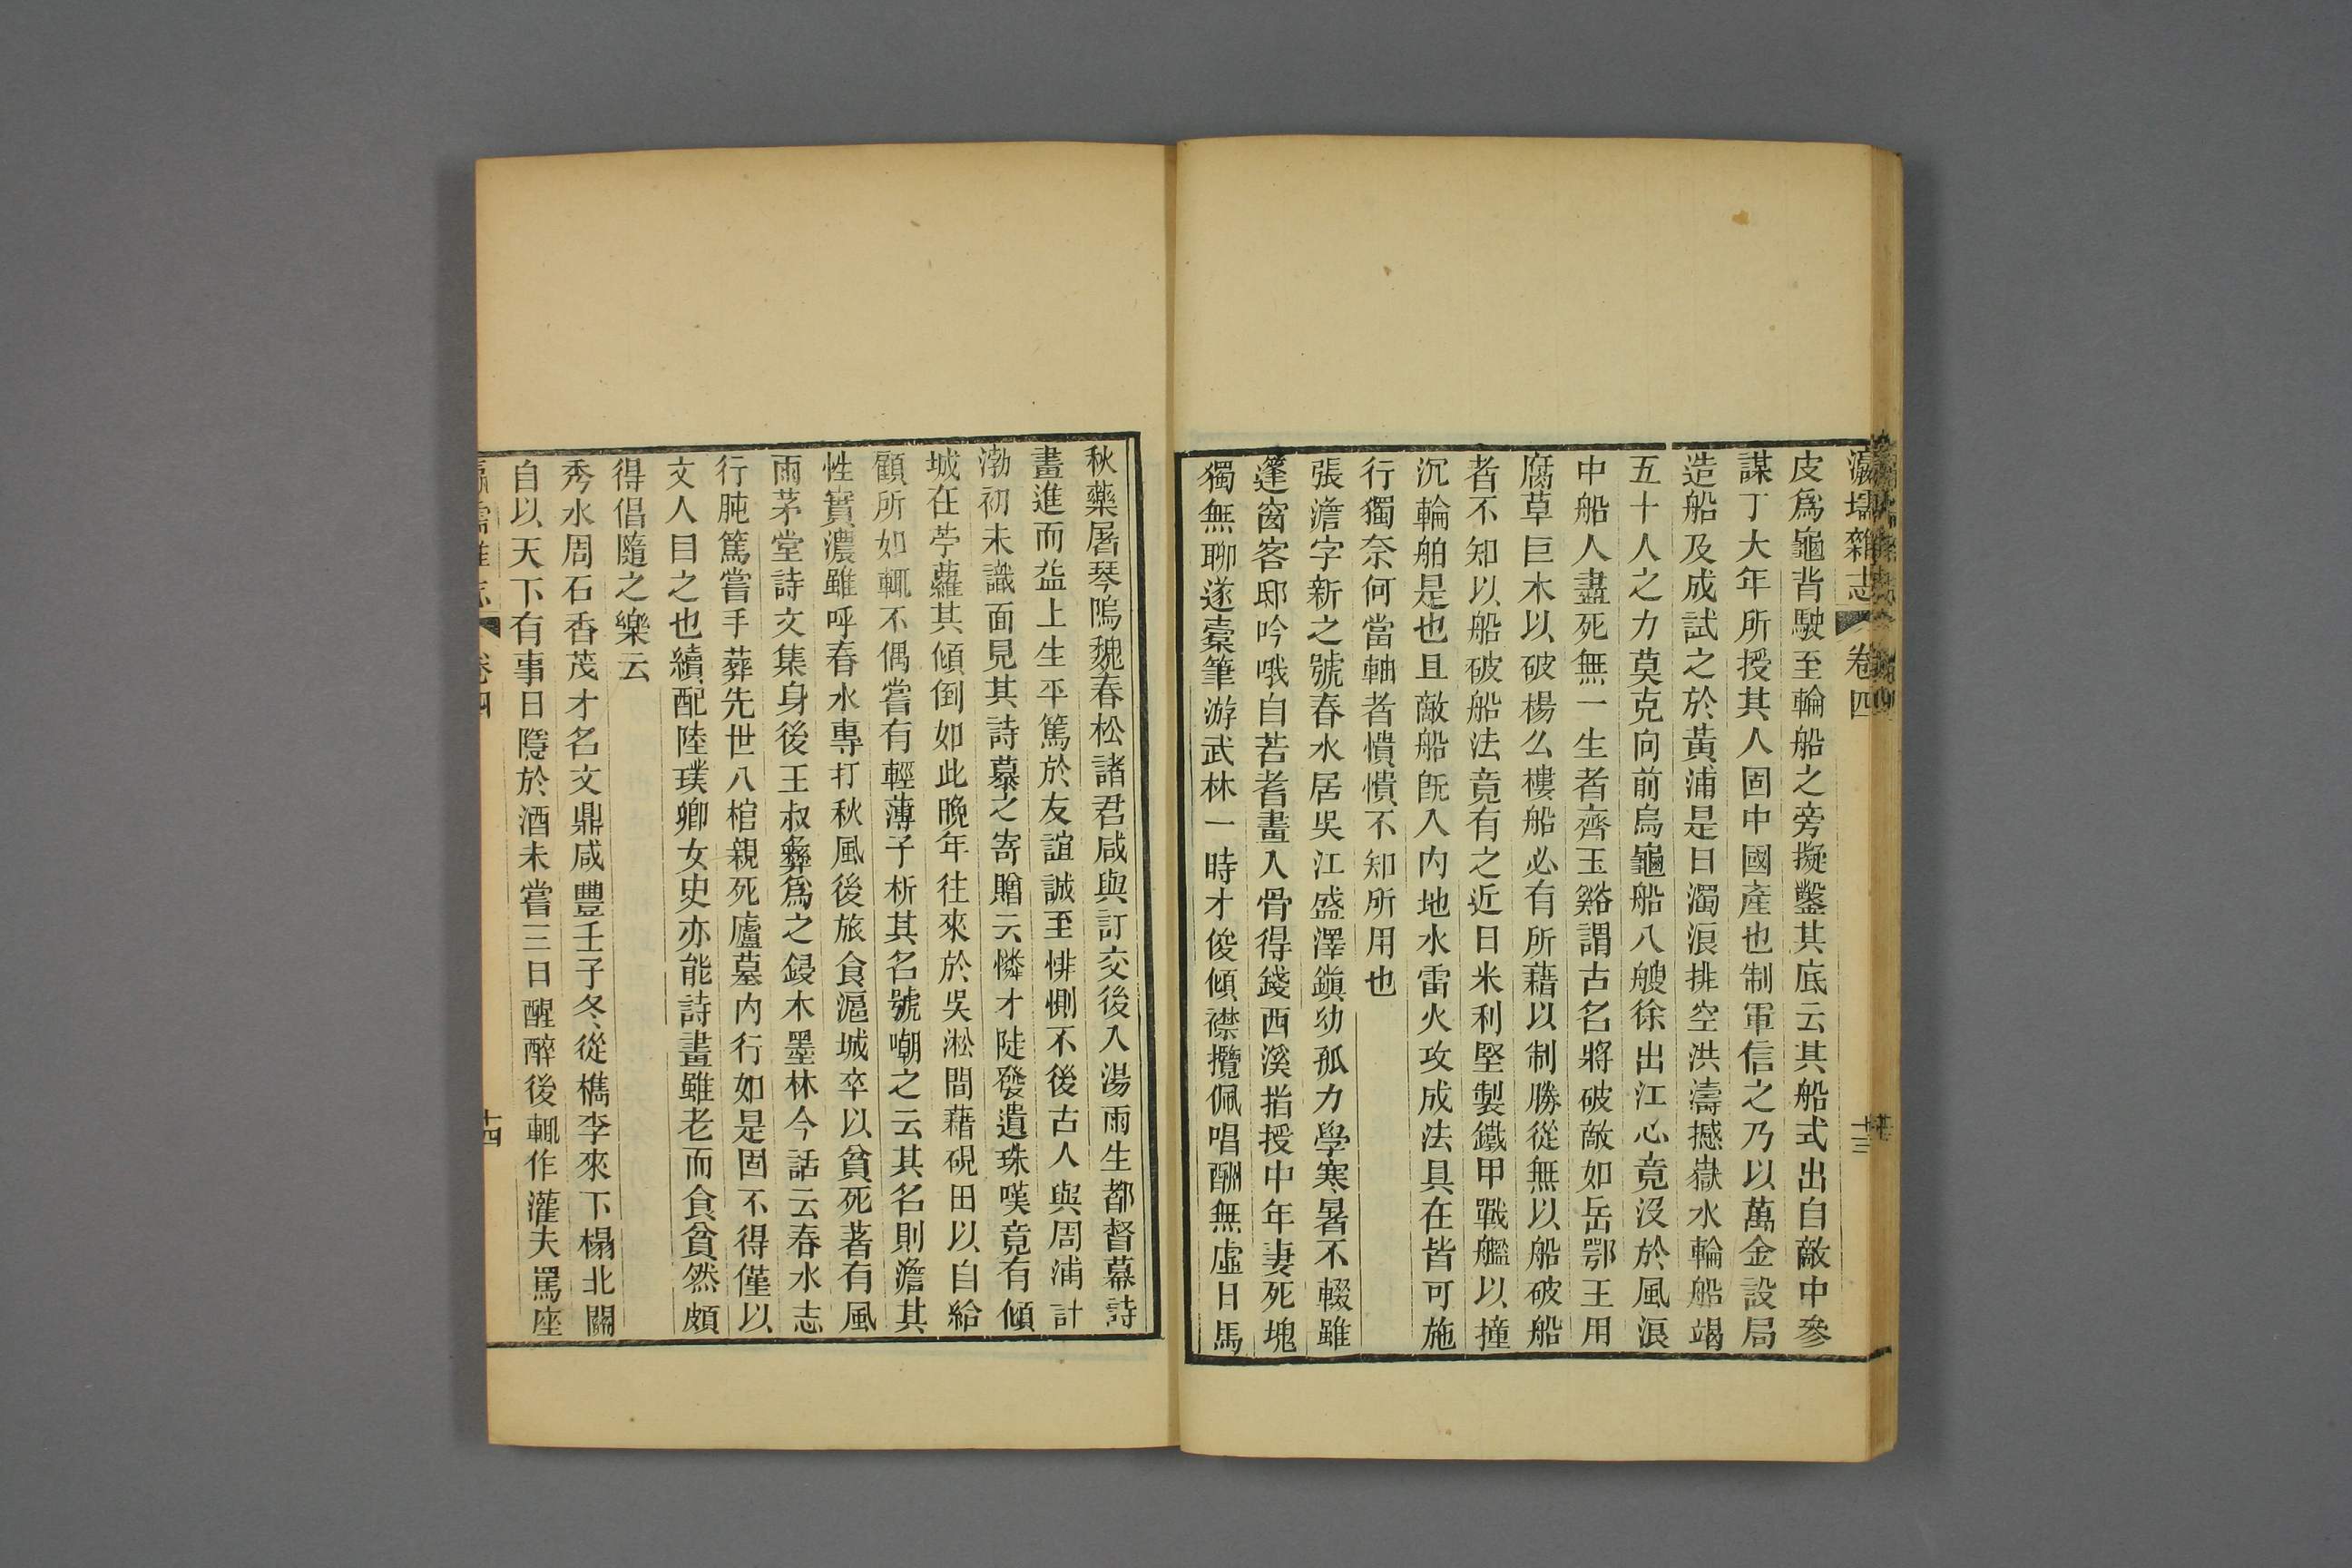 瀛壖雜志 卷四 十三
皮爲龜背駛至輪船之旁擬鑿其底云其船式出自敵中參
謀丁大年所授其人固中國產也制軍信之乃以萬金設局
造船及成試之於黃浦是日濁浪排空洪濤撼嶽水輪船竭
五十人之力莫克向前烏龜船八艘徐出江心竟沒於風浪
中船人盡死無一生者齊玉谿謂古名將破敵如岳鄂王用
腐草巨木以破楊么樓船必有所藉以制勝從無以船破船
者不知以船破船法竟有之近日米利堅製鐵甲戰艦以撞
沉輪舶是也且敵船旣入內地水雷火攻成法具在皆可施
行獨奈何當軸者憒憒不知所用也
張澹字新之號春水居吳江盛澤鎭幼孤力學寒暑不輟雖
篷窗客邸吟哦自若耆畫入骨得錢西溪指授中年妻死塊
獨無聊遂橐筆游武林一時才俊傾襟攬佩唱酬無虛日馬
秋藥屠琴隖魏春松諸君咸與訂交後入湯雨生都督幕詩
畫進而益上生平篤於友誼誠至悱惻不後古人與周浦計
渤初未識面見其詩慕之寄贈云憐才陡發遺珠嘆竟有傾
城在苧蘿其傾倒如此晚年往來於吳淞間藉硯田以自給
顧所如輒不偶嘗有輕薄子析其名號嘲之云其名則澹其
性實濃雖呼春水專打秋風後旅食滬城卒以貧死著有風
雨茅堂詩文集身後王叔彝爲之鋟木墨林今話云春水志
行肫篤嘗手葬先世八棺親死廬墓內行如是固不得僅以
文人目之也續配陸璞卿女史亦能詩畫雖老而食貧然頗
得倡隨之樂云
秀水周石香茂才名文鼎咸豐壬子冬從檇李來下榻北關
自以天下有事日隱於酒未嘗三日醒醉後輒作灌夫罵座
卷四 十四